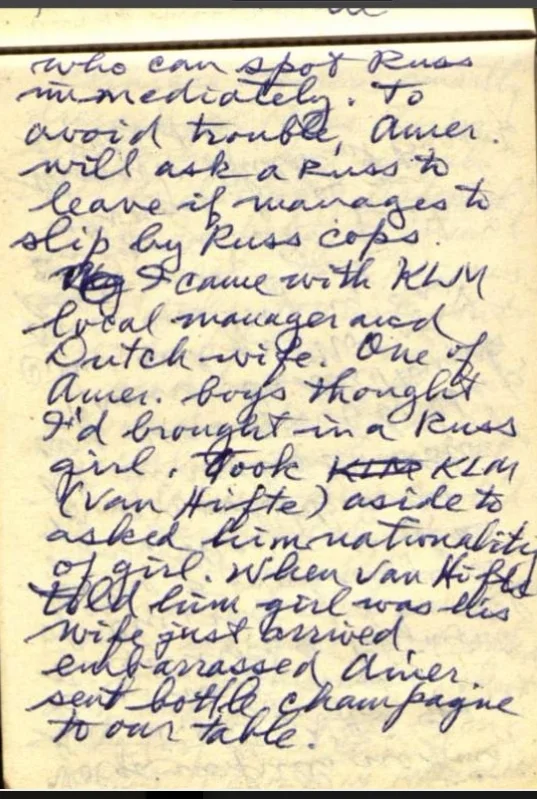 who can spot Russ
immediately. To
avoid trouble, Amer.
will ask a Russ to
leave if manages to
slip by Russ cops.
I came with KLM
local manager and
Dutch wife. One of
Amer. boys thought
I'd brought in a Russ
girl. Took KLM KLM
(Van Hifte) aside to
asked him nationality
of girl. When Van Hifte
told him girl was his
wife just arrived
embarrassed Amer.
sent bottle champagne
to our table.